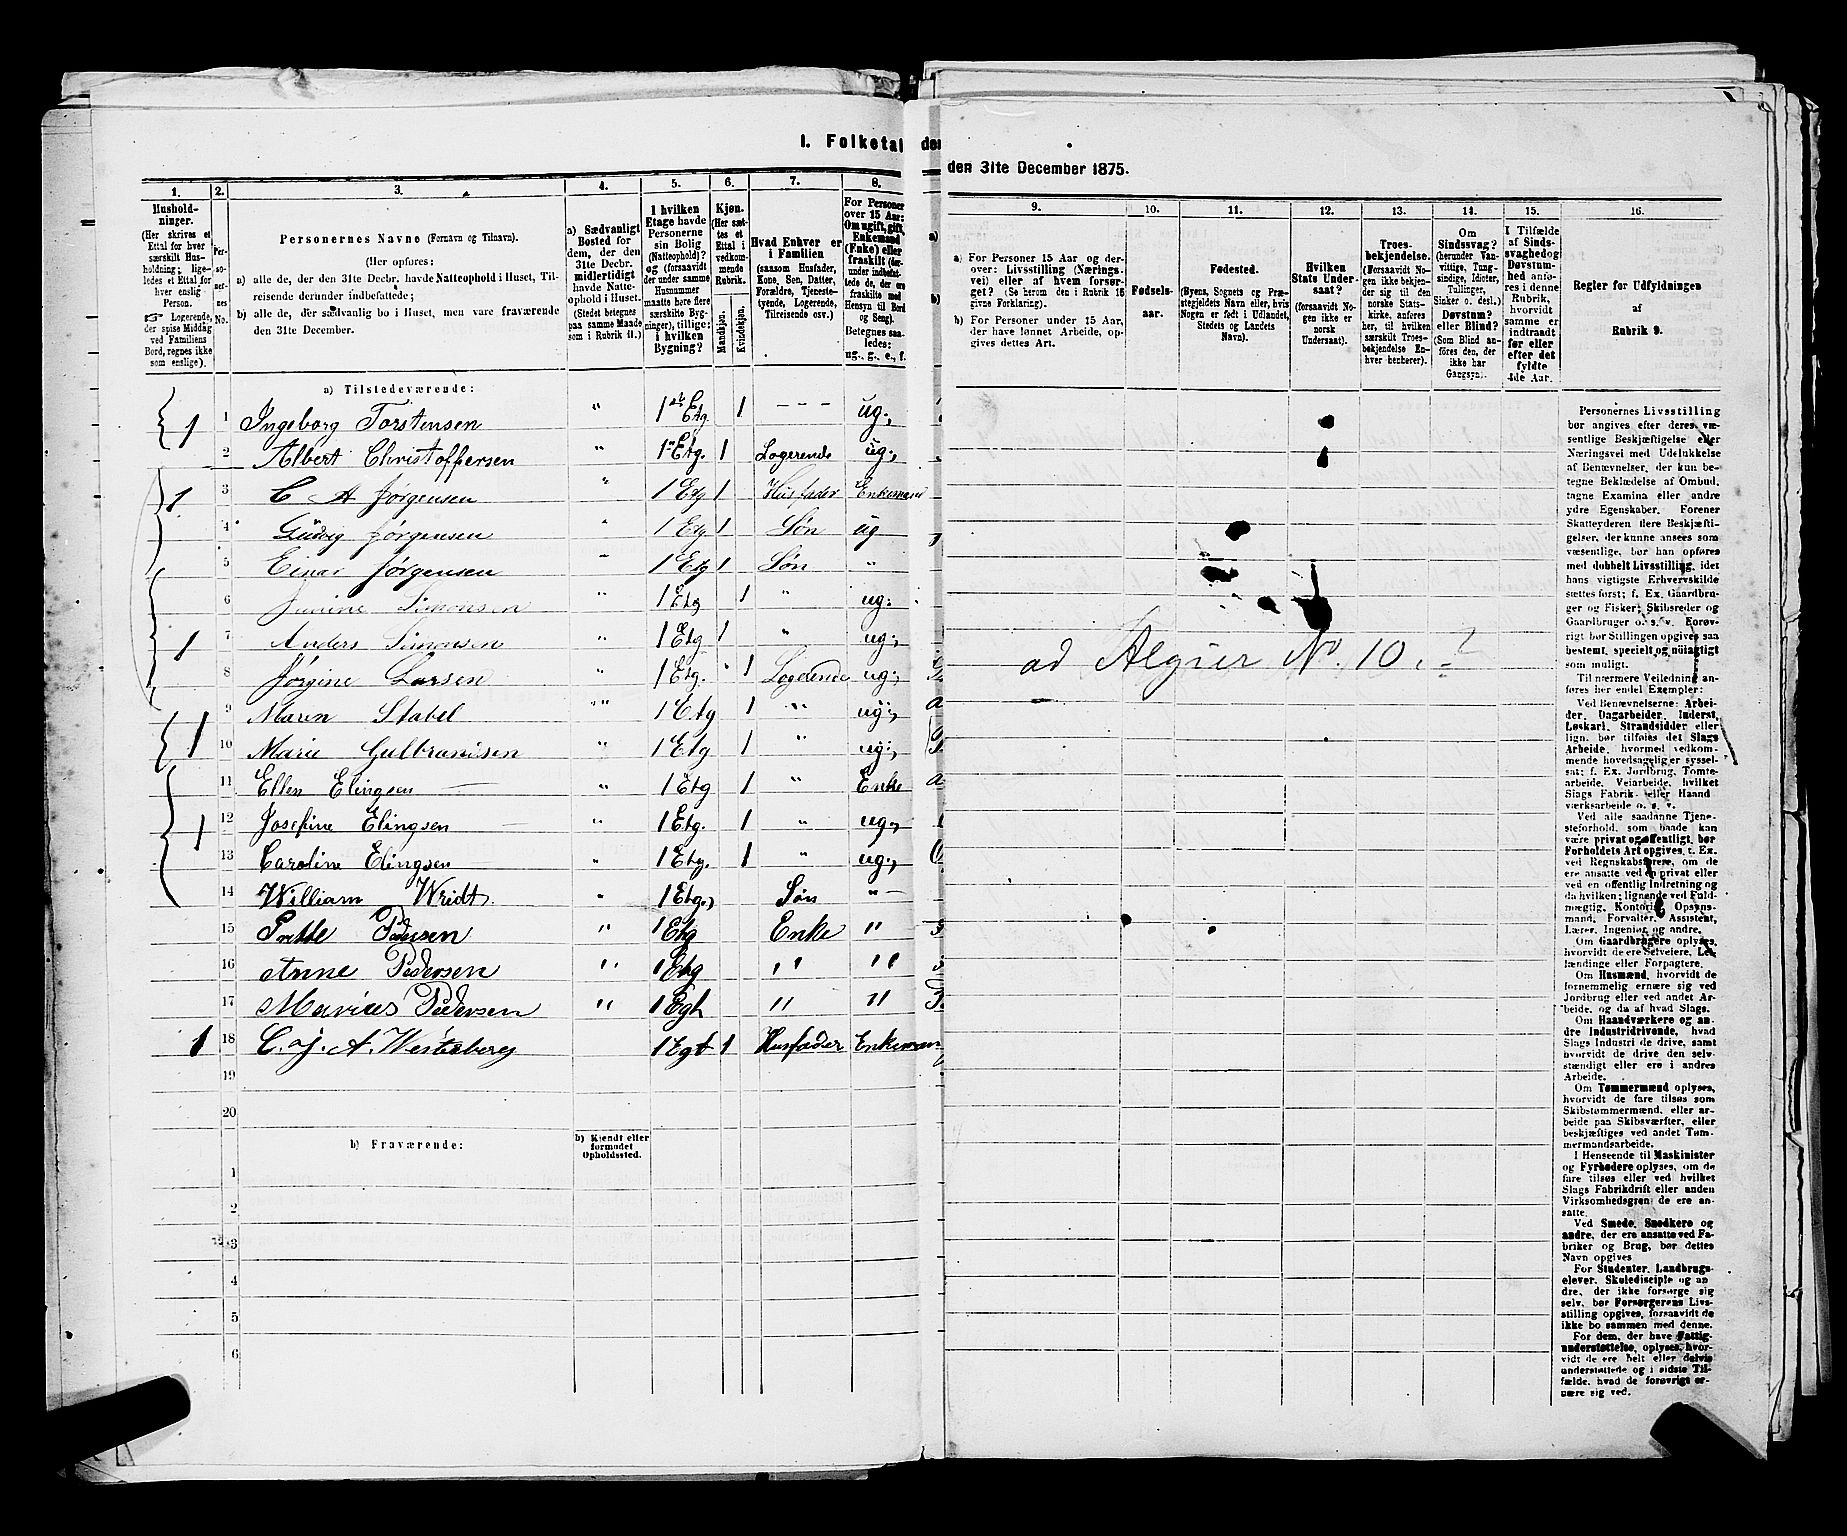 I. Folketal den
1. 2. 3. 4. 5. 6. 7. 8.
Hushold-
ninger.
(Her skrives et
Ettal for hver
særskilt Hus-
holdning; lige-
ledes et Ettal for
hver enslig
Person.
☞ Logerende,
der spise Middag
ved Familiens
Bord, regnes ikke
som enslige).
Per-
so-
ner-
nes
No.
Personernes Navne (Fornavn og Tilnavn).
(Her opføres:
a) alle de, der den 31te Decbr. havde Natteophold i Huset, Til-
reisende derunder indbefattede;
b) alle de, der sædvanlig bo i Huset, men vare fraværende
den 31te December.
a) Sædvanligt
Bosted for
dem, der den
31te Decbr.
midlertidigt
havde Natte-
ophold i Huset.
(Stedet betegnes
paa samme Maade
som i Rubrik 11.)
I hvilken
Etage havde
Personerne
sin Bolig
(Natteophold)?
og (forsaavidt
der under samme
Husnummer
maatte høre flere
særskilte Byg-
ninger), tillige:
i hvilken
Bygning?
Kjøn.
(Her sæt-
tes et
Ettal i
vedkom-
mende
Rubrik.
Mandkjøn.
Kvindekjøn.
Hvad Enhver er
i Familien
(saasom Husfader,
Kone, Søn, Datter,
Forældre, Tjeneste-
tyende, Logerende,
Tilreisende osv.)
For Personer
over 15 Aar:
Om ugift, gift,
Enkemand
(Enke) eller
fraskilt (der-
under indbefat-
tede de, der ere
fraskilte med
Hensyn til Bord
og Seng).
Betegnes saa-
ledes:
ug., g., e., f.
a)
b)
a) Tilstedeværende:
1 1 Ingeborg Torstensen " 1ste Etg 1 - - - ug.,
2 Albert Christoffersen " 1" Etg. 1 Logerende ug.,
1 3 C A Jørgensen " 1 Etg 1 Husfader Enkemand
4 Ludvig Jørgensen " 1 Etg 1 Søn ug
5 Einar Jørgensen " 1 Etg 1 Søn "
6 Janine Simonsen " 1 Etg 1 " ug:
1 7 Anders Simonsen " 1 Etg 1 " ug.,
8 Jørgine Larsen " 1 Etg. 1 Logerende ug.,
1 9 Maren Stabel "" 1 Etg 1 "" ug.,
10 Marie Gulbrandsen "" 1 Etg 1 "" ug.,
11 Ellen Elingsen "" 1 Etg 1 "" Enke
1 12 Josefine Elingsen " 1 Etg. 1 " ug.,
13 Caroline Elingsen " 1 Etg. 1 " ug.,
14 William Wridt. " 1 Etg., Søn "
15 Grethe Pedersen " 1 Etg Enke "
16 Anne Pedersen " 1 Etg " "
17 Marius Pedersen " 1 Egt " "
1 18 C. J. A. Westerberg 1 Egt 1 Husfader Enkemann
19
20
b) Fraværende:
b) Kjendt eller
formodet
Opholdssted.
1
2
3
4
5
6
den 31te December 1875.
9. 10. 11. 12. 13. 14. 15. 16.
a) For Personer 15 Aar og der-
over: Livsstilling (Nærings-
vei) eller af hvem forsør-
get? (Se herom den i Rubrik 16
givne Forklaring).
b) For Personer under 15 Aar,
der have lønnet Arbeide, op-
gives dettes Art.
Fødsels-
aar.
Fødested.
(Byens, Sognets og Præ-
stegjeldets Navn eller, hvis
Nogen er født i Udlandet,
Stedets og Landets
Navn).
Hvilken
Stats Under-
saat?
(forsaavidt No-
gen ikke er
norsk
Undersaat).
Troes-
bekjendelse.
(Forsaavidt No-
gen ikke bekjen-
der sig til den
norske Stats-
kirke, anføres
her, til hvilken
særskilt Troes-
bekjendelse En-
hver henhører).
Om
Sindssvag?
(herunder Van-
vittige, Tung-
sindige, Idioter,
Tullinger,
Sinker o. desl.)
Døvstum?
eller Blind?
(Som Blind an-
føres den, der
ikke har
Gangsyn).
I Tilfælde
af Sinds-
svaghed og
Døvstum-
hed anfø-
res i denne
Rubrik,
hvorvidt
samme er
indtraadt
før eller
efter det
fyldte
4de Aar.
Regler for Udfyldningen
af
Rubrik 9.
ad Algier No. 10. ?
Personernes Livsstilling
bør angives efter deres væ-
sentlige Beskjæftigelse eller
Næringsvei med Udelukkelse
af Benævnelser, der kun be-
tegne Beklædelse af Ombud,
tagne Examina eller andre
ydre Egenskaber. Forener
Skatteyderen flere Beskjæfti-
gelser, der kunne ansees som
væsentlige, bør han opføres
med dobbelt Livsstilling, idet
hans vigtigste Erhvervskilde
sættes først; f. Ex. Gaardbru-
ger og Fisker; Skibsreder og
Gaardbruger o. s. v. Forøv-
rigt bør Stillingen opgives saa
bestemt, specielt og nøiagtigt
som muligt.
Til nærmere Veiledning an-
føres her endel Exempler:
Ved Benævnelserne: Arbei-
der, Dagarbeider, Inderst,
Løskarl, Strandsidder eller
lign. bør tilføies det Slags
Arbeide, hvormed vedkom-
mende hovedsagelig er syssel-
sat; f. Ex. Jordbrug, Tomte-
arbeide, Veiarbeide, hvilket
Slags Fabrik- eller Haand-
værksarbeide o. s. v.
Ved alle saadanne Tjene-
steforhold, som baade kan
være privat og offentligt, bør
Forholdets Art opgives, t. Ex.
ved Regnskabsførere, om de
ere ansatte ved en privat eller
ved en offentlig Indretning og
da hvilken; lignende ved Fuld-
mægtig, Kontorist, Opsyns-
mand, Forvalter, Assistent,
Lærer, Ingeniør og andre.
Om Gaardbrugere oplyses,
hvorvidt de ere Selveiere, Lei-
lændinge eller Forpagtere.
Om Husmænd, hvorvidt de
fornemmelig ernære sig ved
Jordbrug eller ved andet Ar-
beide, og da af hvad Slags.
Om Haandværkere og an-
dre Industridrivende, hvad
Slags Industri de drive, samt
hvorvidt de drive den selv-
stændigt eller ere i andres
Arbeide.
Om Tømmermænd oplyses,
hvorvidt de fare tilsøs som
Skibstømmermænd, eller ar-
beide paa Skibsværfter, eller
beskjæftiges ved andet Tøm-
mermandsarbeide.
I Henseende til Maskinister
og Fyrbødere oplyses, om de
fare tilsøs eller ved hvilket
Slags Fabrikdrift eller anden
Virksomhedsgren de ere an-
satte.
Ved Smede, Snedkere og
andre, der ere ansatte ved Fa-
briker og Brug, bør dettes
Navn opgives
For Studenter, Landbrugs-
elever, Skoledisciple og an-
dre, der ikke forsørge sig
selv, bør Forsørgerens Livs-
stilling opgives, forsaavidt de
ikke bo sammen med denne.
For dem, der have Fattig-
understøttelse, oplyses, hvor-
vidt de ere helt eller delvis
understøttede og i sidste Til-
fælde, hvad de forøvrigt er-
nære sig ved.